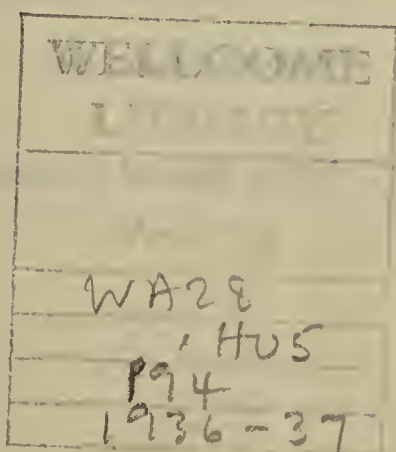 WELLCOME
LIBRARY
WA28
.HU5
P94
1936-37